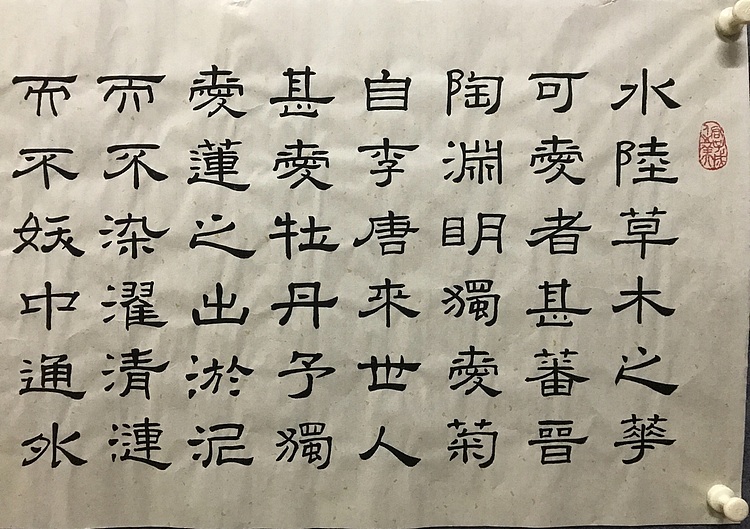 水陸草木之華
可愛者甚蕃晉
陶淵明獨愛菊
自李唐來世人
甚愛牡丹予獨
愛蓮之出淤泥
而不染濯清漣
而不妖中通外